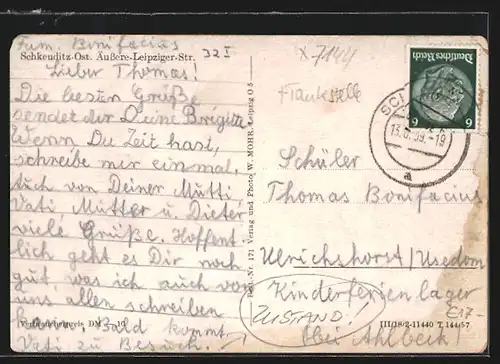 Fam. Bonifacius
Schkeuditz-Ost. Äußere-Leipziger-Str.
32 I
Lieber Thomas!
Die besten Grüße
sendet dir Deine Brigitte
Wenn Du Zeit hast,
schreibe mir einmal,
auch von Deiner Mutti,
Vati, Mutter u. Dieter
viele Grüße. Hoffent
lich geht es Dir noch
gut was ich auch von
uns allen schreiben
kann. Bald kommt
Vati zu Besuch.
Best.-Nr. 171 Verlag und Photo W. MOHR, Leipzig O 5
X 7144
Frankstelle
Deutsches Reich
6 6
SCH
13.6.39.-19
a
Schüler
Thomas Bonifacius
Ulrichshorst/Usedom
Kinderferienlager
(bei Ahlbeck)
ZUSTAND!
E17-
III/18/2-11440 T 144/57